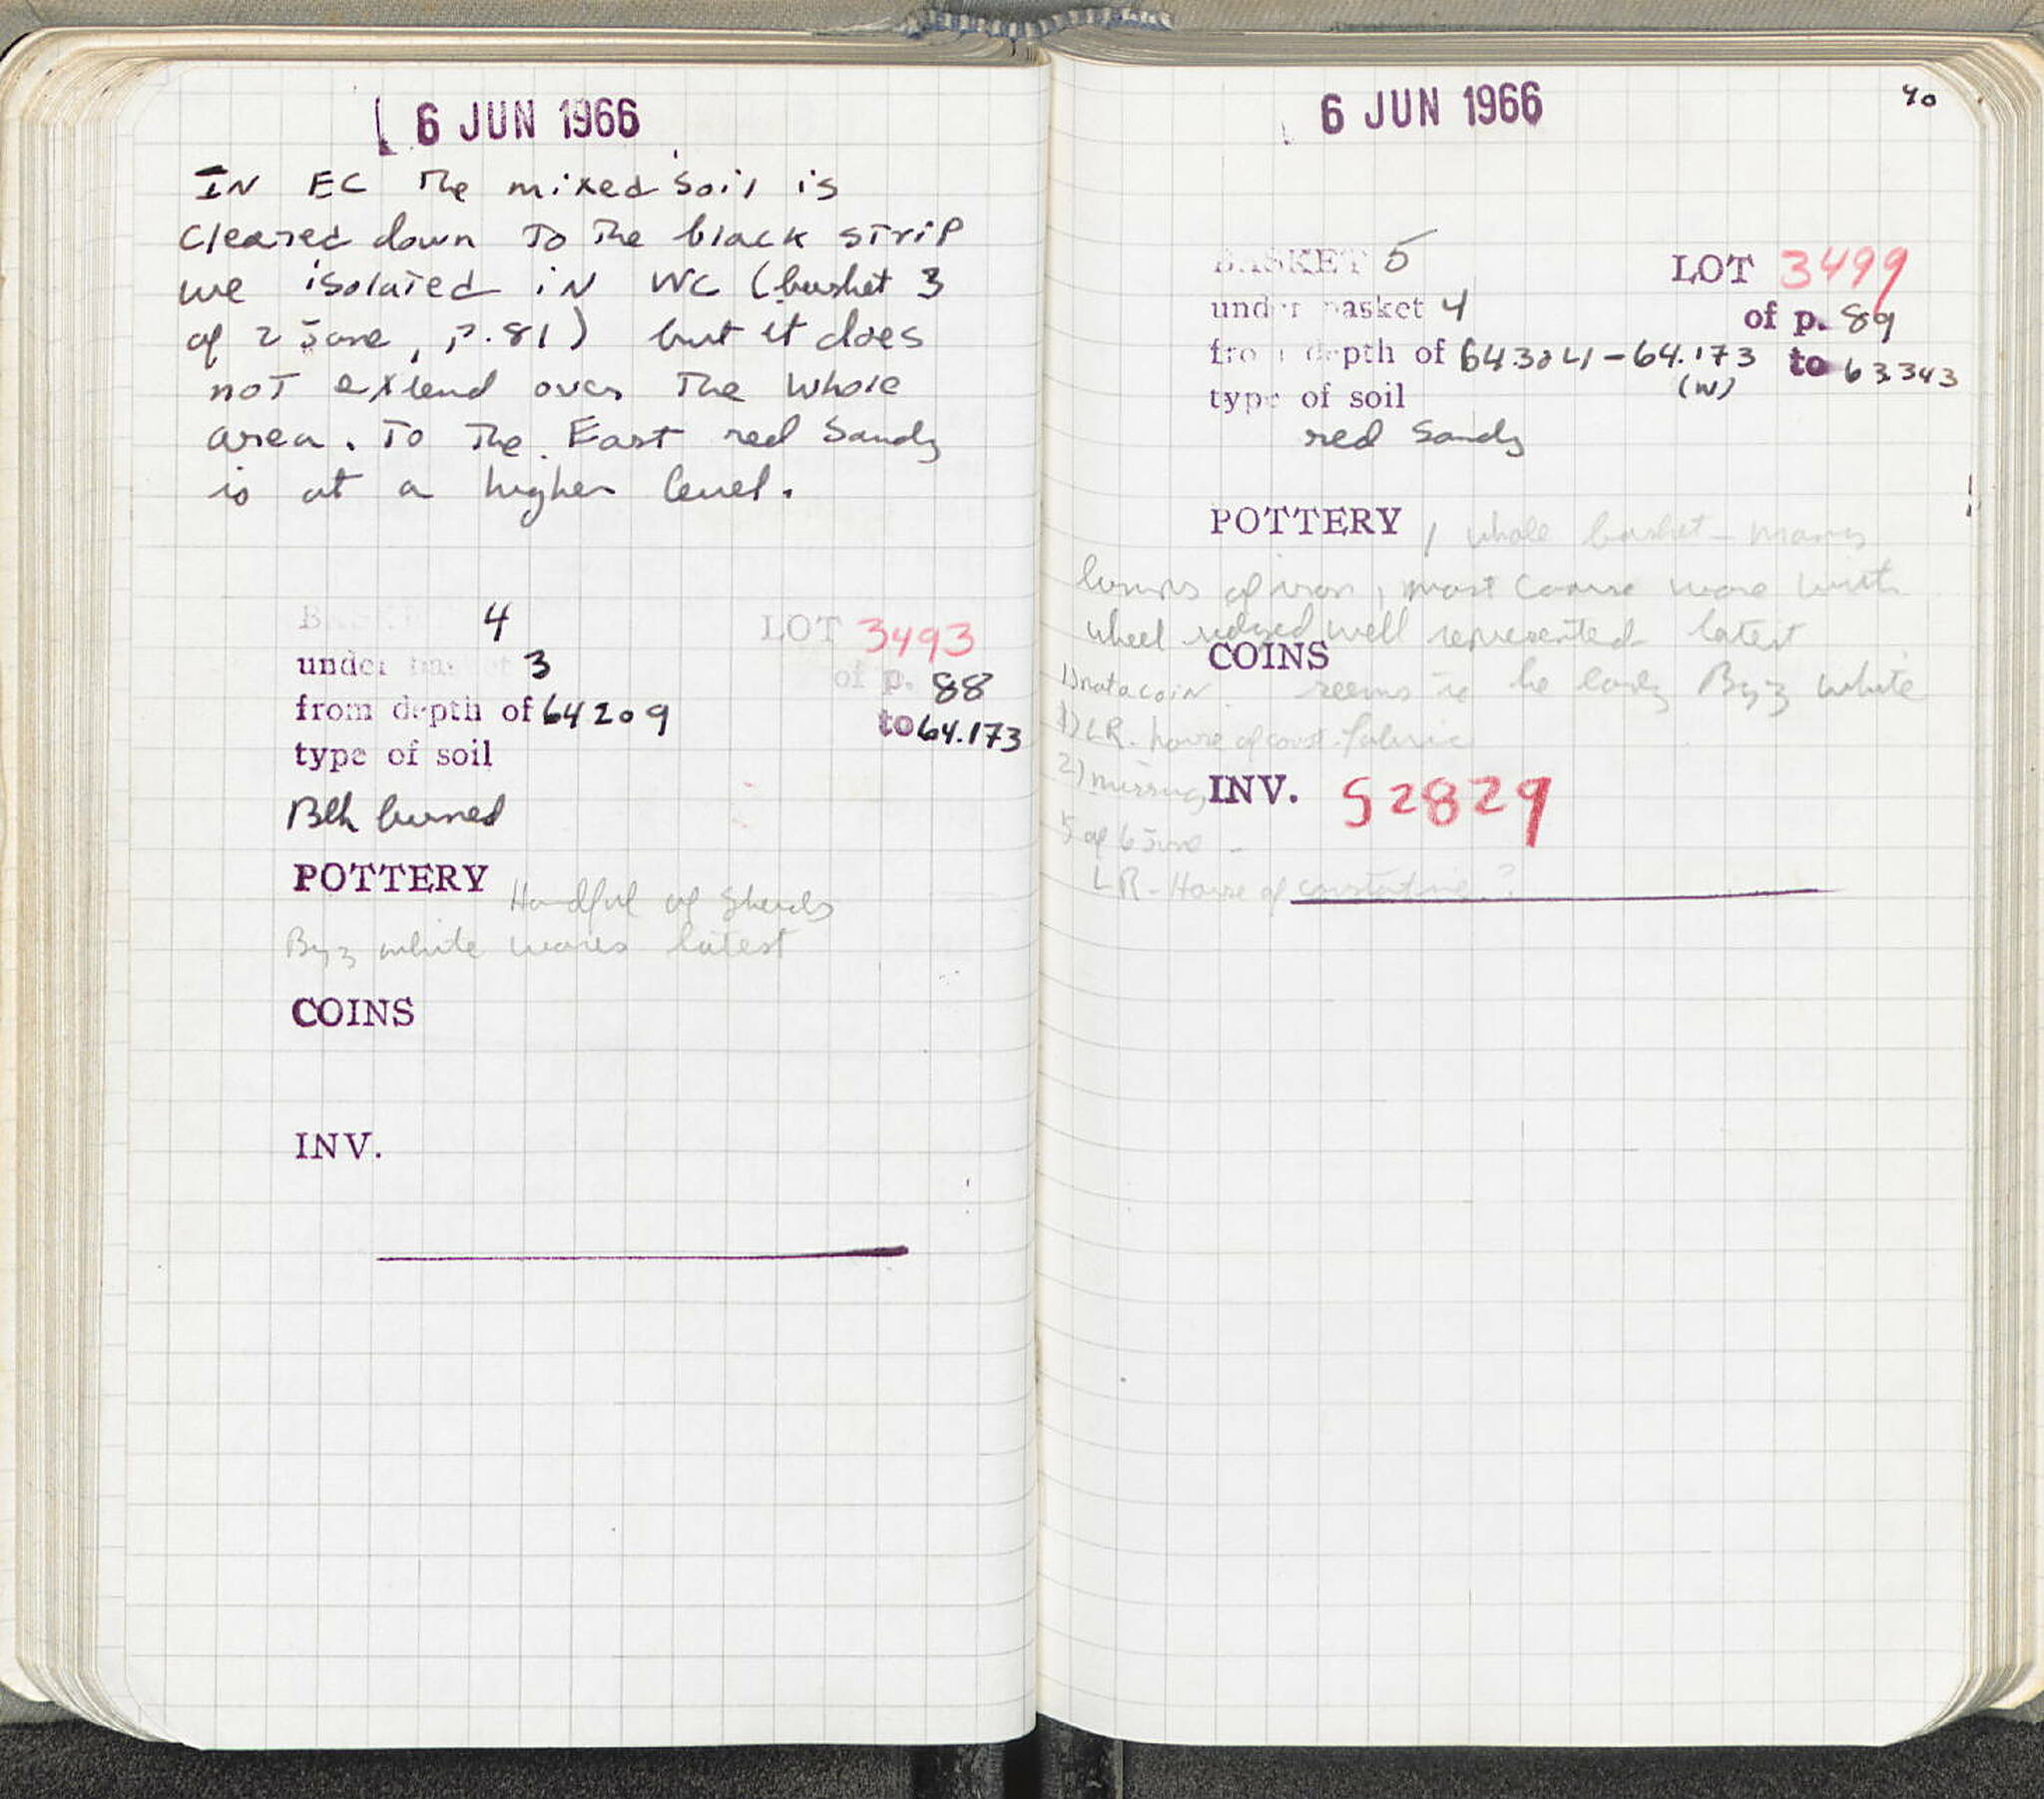 6 JUN 1966
IN EC The mixed soil is
cleared down To The black strip
we isolated in WC (basket 3
of 2 June, p.81) but it does
not extend over The whole
area. To The East red sandy
is at a higher level.
BASKET 4 LOT 3493
under basket 3 of p. 88
from depth of 64.209 to 64.173
type of soil
Blk burned
POTTERY Handful of sherds
Byz white wares latest
COINS
INV.
6 JUN 1966
90
BASKET 5 LOT 3499
under basket 4 of p. 89
from depth of 64.3041-64.173 to 63.343
(W)
type of soil
red sandy
POTTERY 1 whole basket - many
lumps of iron, most coarse ware with
wheel ridged well represented latest
COINS
1) not a coin seems to be early Byz white
1) LR. house of const. fabric
2) missing
INV. S2829
5 of 6 June -
LR - House of Constantine?